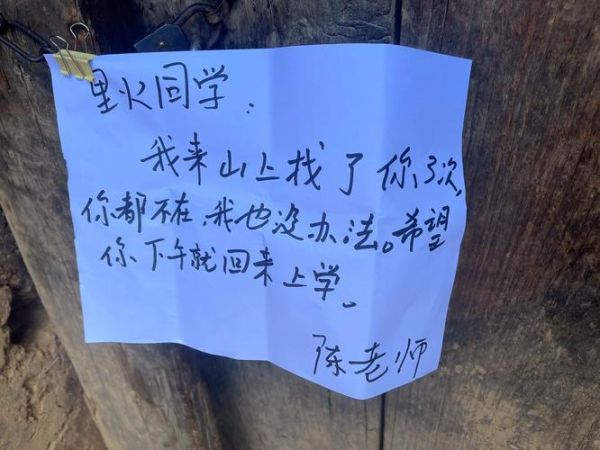 里火同学：
我来山上找了你3次，
你都不在，我也没办法。希望
你下午就回来上学。
陈老师